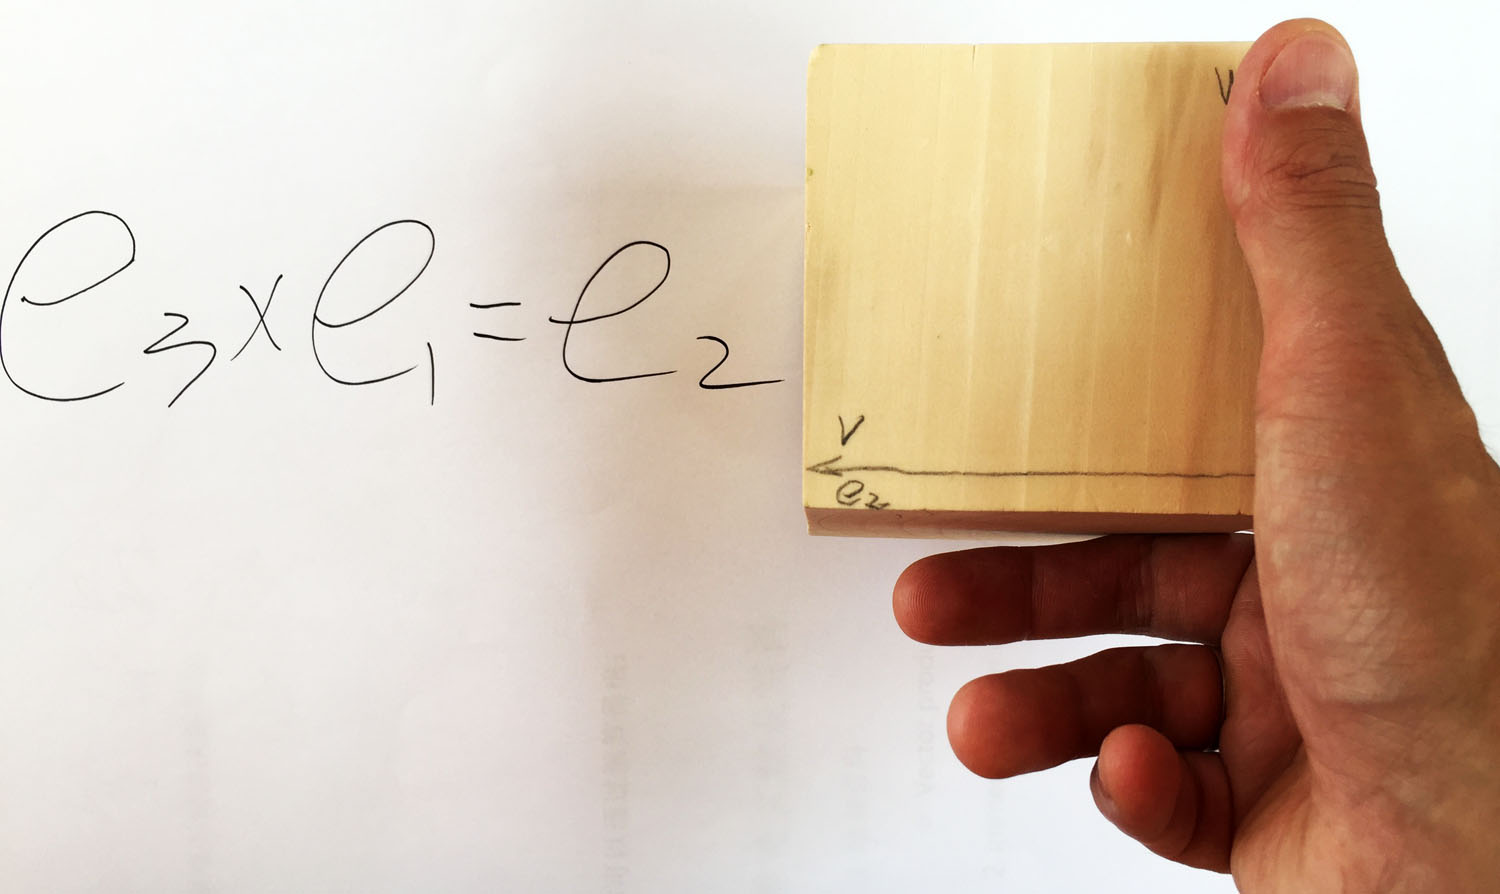 e₃ × e₁ = e₂
V
V
e₂